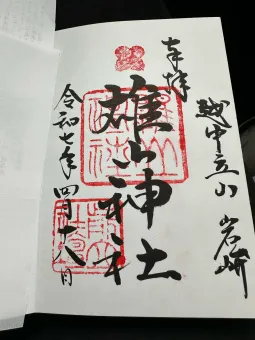 奉拝
越中立山 岩峅
雄山神社
令和七年 四月十八日